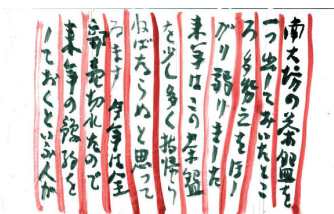 南大坊の茶盤を
一つ出してみいたとこ
ろ多勢之をほし
がり弱りました
来年はこの茶盤
を少し多く拵帰ら
ねばならぬと思って
ゐます 今年は全
部売切れたので
来年の予約を
しておくといふ人が